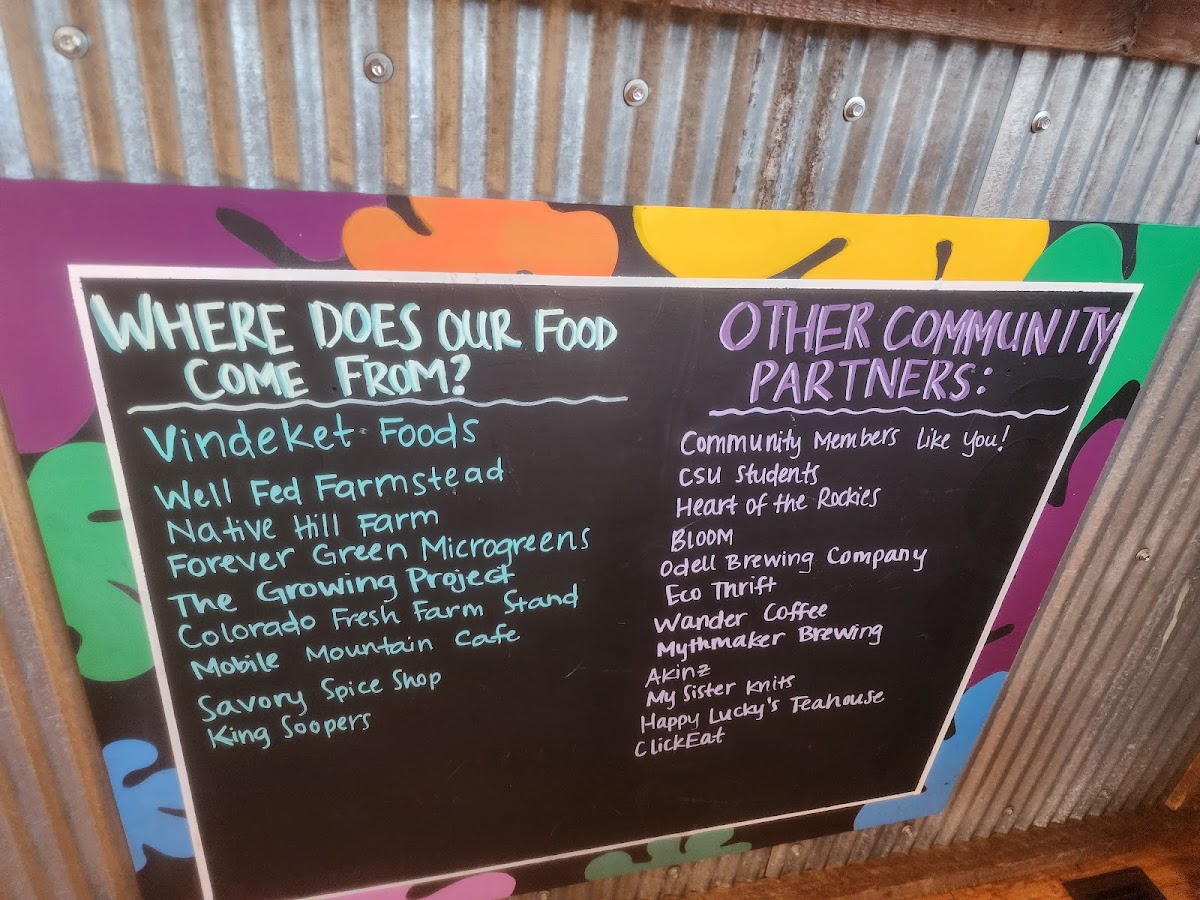 WHERE DOES OUR FOOD
COME FROM?
Vindeket Foods
Well Fed Farmstead
Native Hill Farm
Forever Green Microgreens
The Growing Project
Colorado Fresh Farm Stand
Mobile Mountain Cafe
Savory Spice Shop
King Soopers
OTHER COMMUNITY
PARTNERS:
Community Members Like you!
CSU Students
Heart of the Rockies
BLOOM
Odell Brewing Company
Eco Thrift
Wander Coffee
Mythmaker Brewing
Akinz
My Sister Knits
Happy Lucky's Teahouse
ClickEat